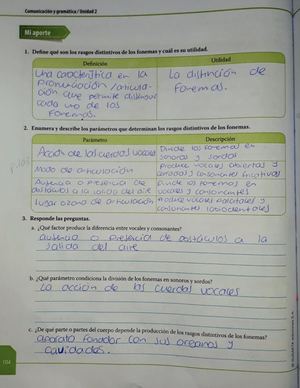 Comunicación y gramática / Unidad 2
Mi aporte
1. Define qué son los rasgos distintivos de los fonemas y cuál es su utilidad.
Definición
Utilidad
Una característica en la
pronunciación / articula-
ción que permite distinguir
cada uno de los
fonemas.
La distinción de
fonemas.
2. Enumera y describe los parámetros que determinan los rasgos distintivos de los fonemas.
Parámetro
Descripción
Acción de las cuerdas vocales
Divide los fonemas en
sonoros y sordos
Modo de articulación
produce vocales abiertas y
cerradas y consonantes fricativas
Ausencia o presencia de
obstáculos a la salida del aire
Divide los fonemas en
vocales y consonantes
Lugar o zona de articulación
Produce vocales palatales y
consonantes labiodentales
3. Responde las preguntas.
a. ¿Qué factor produce la diferencia entre vocales y consonantes?
ausencia o presencia de obstáculos a la
salida del aire
b. ¿Qué parámetro condiciona la división de los fonemas en sonoros y sordos?
La acción de las cuerdas vocales
c. ¿De qué parte o partes del cuerpo depende la producción de los rasgos distintivos de los fonemas?
aparato fonador con sus órganos y
cavidades.
104